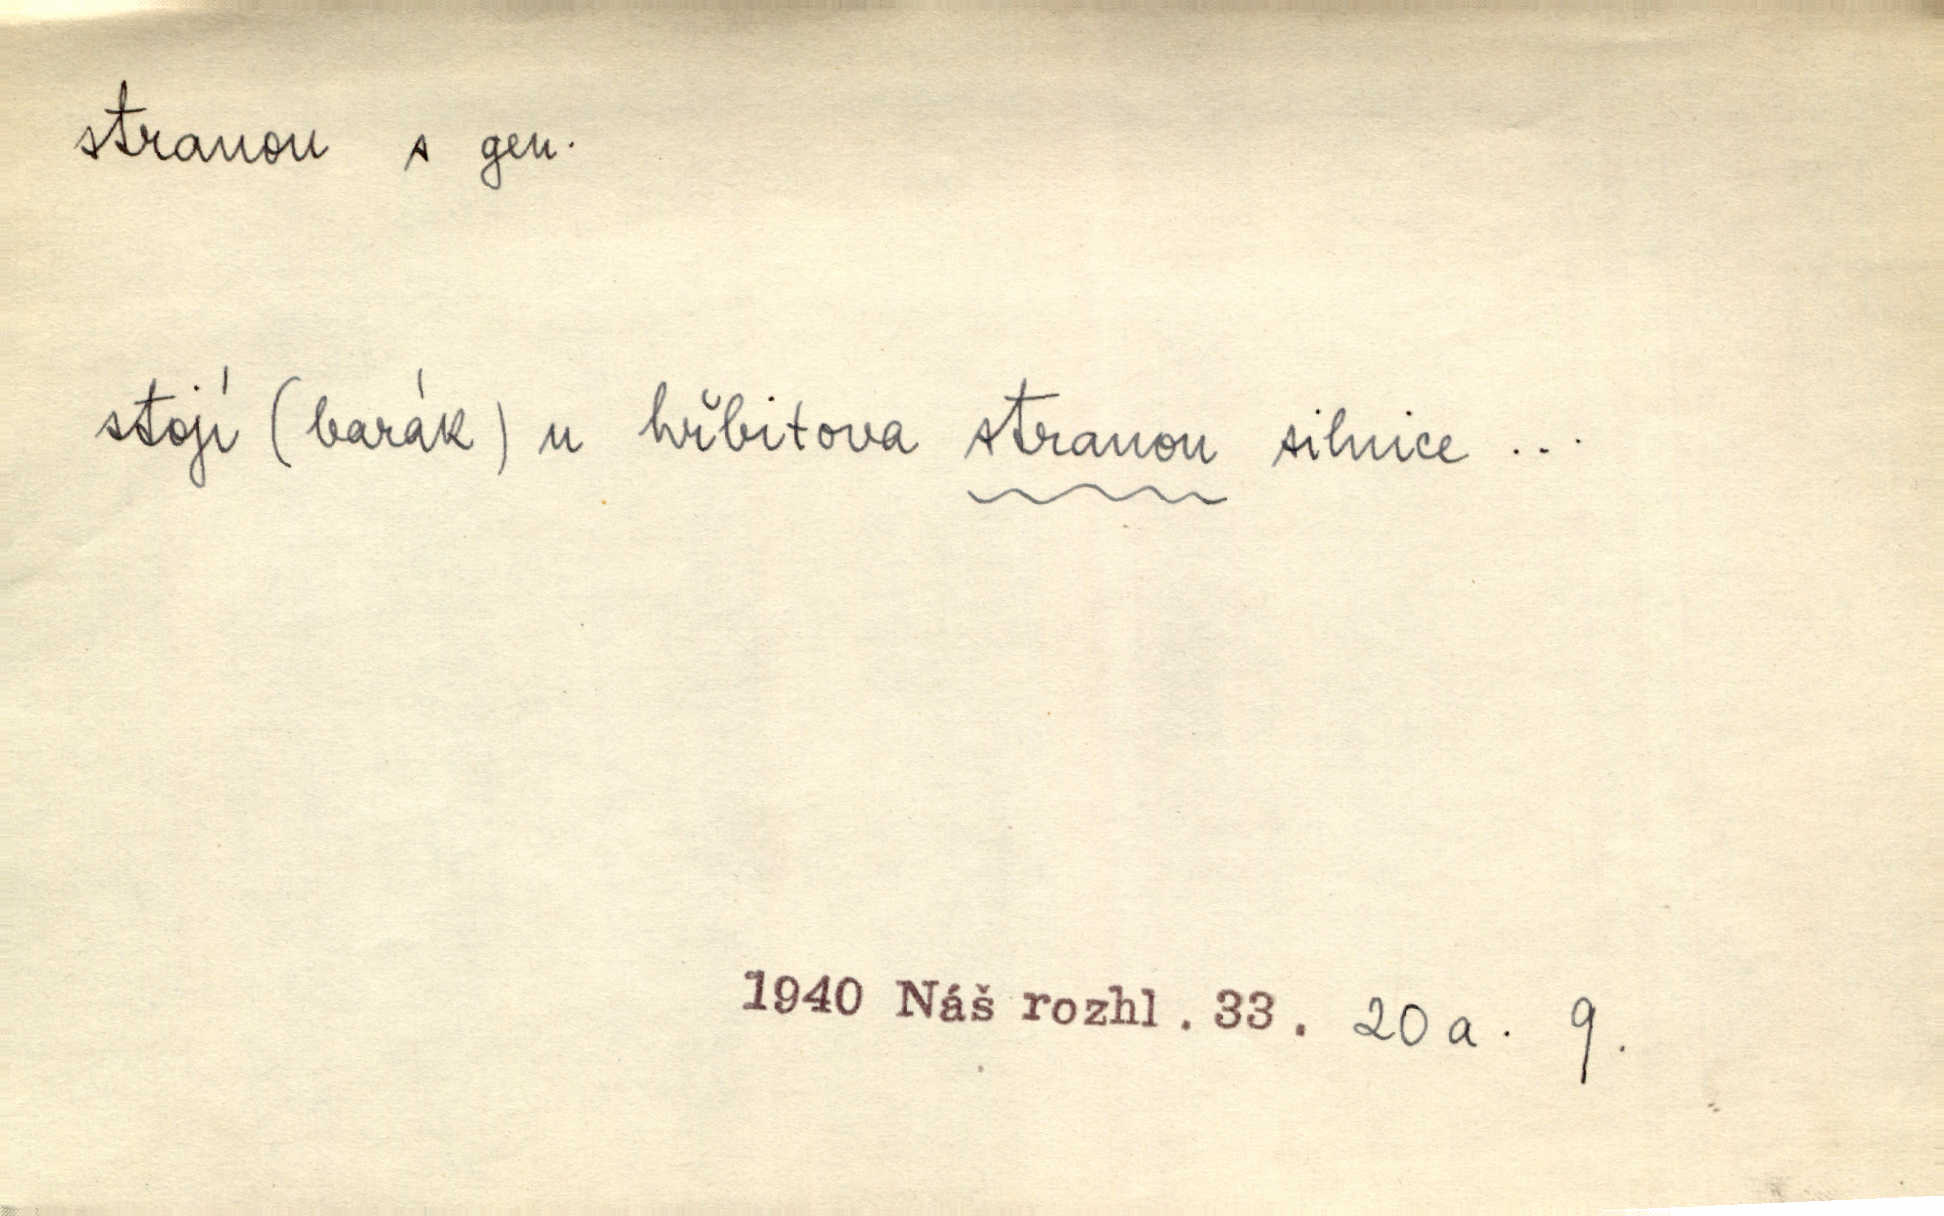 stranou s gen.
stojí (barák) u hřbitova stranou silnice ...
1940 Náš rozhl. 33. 20a. 9.